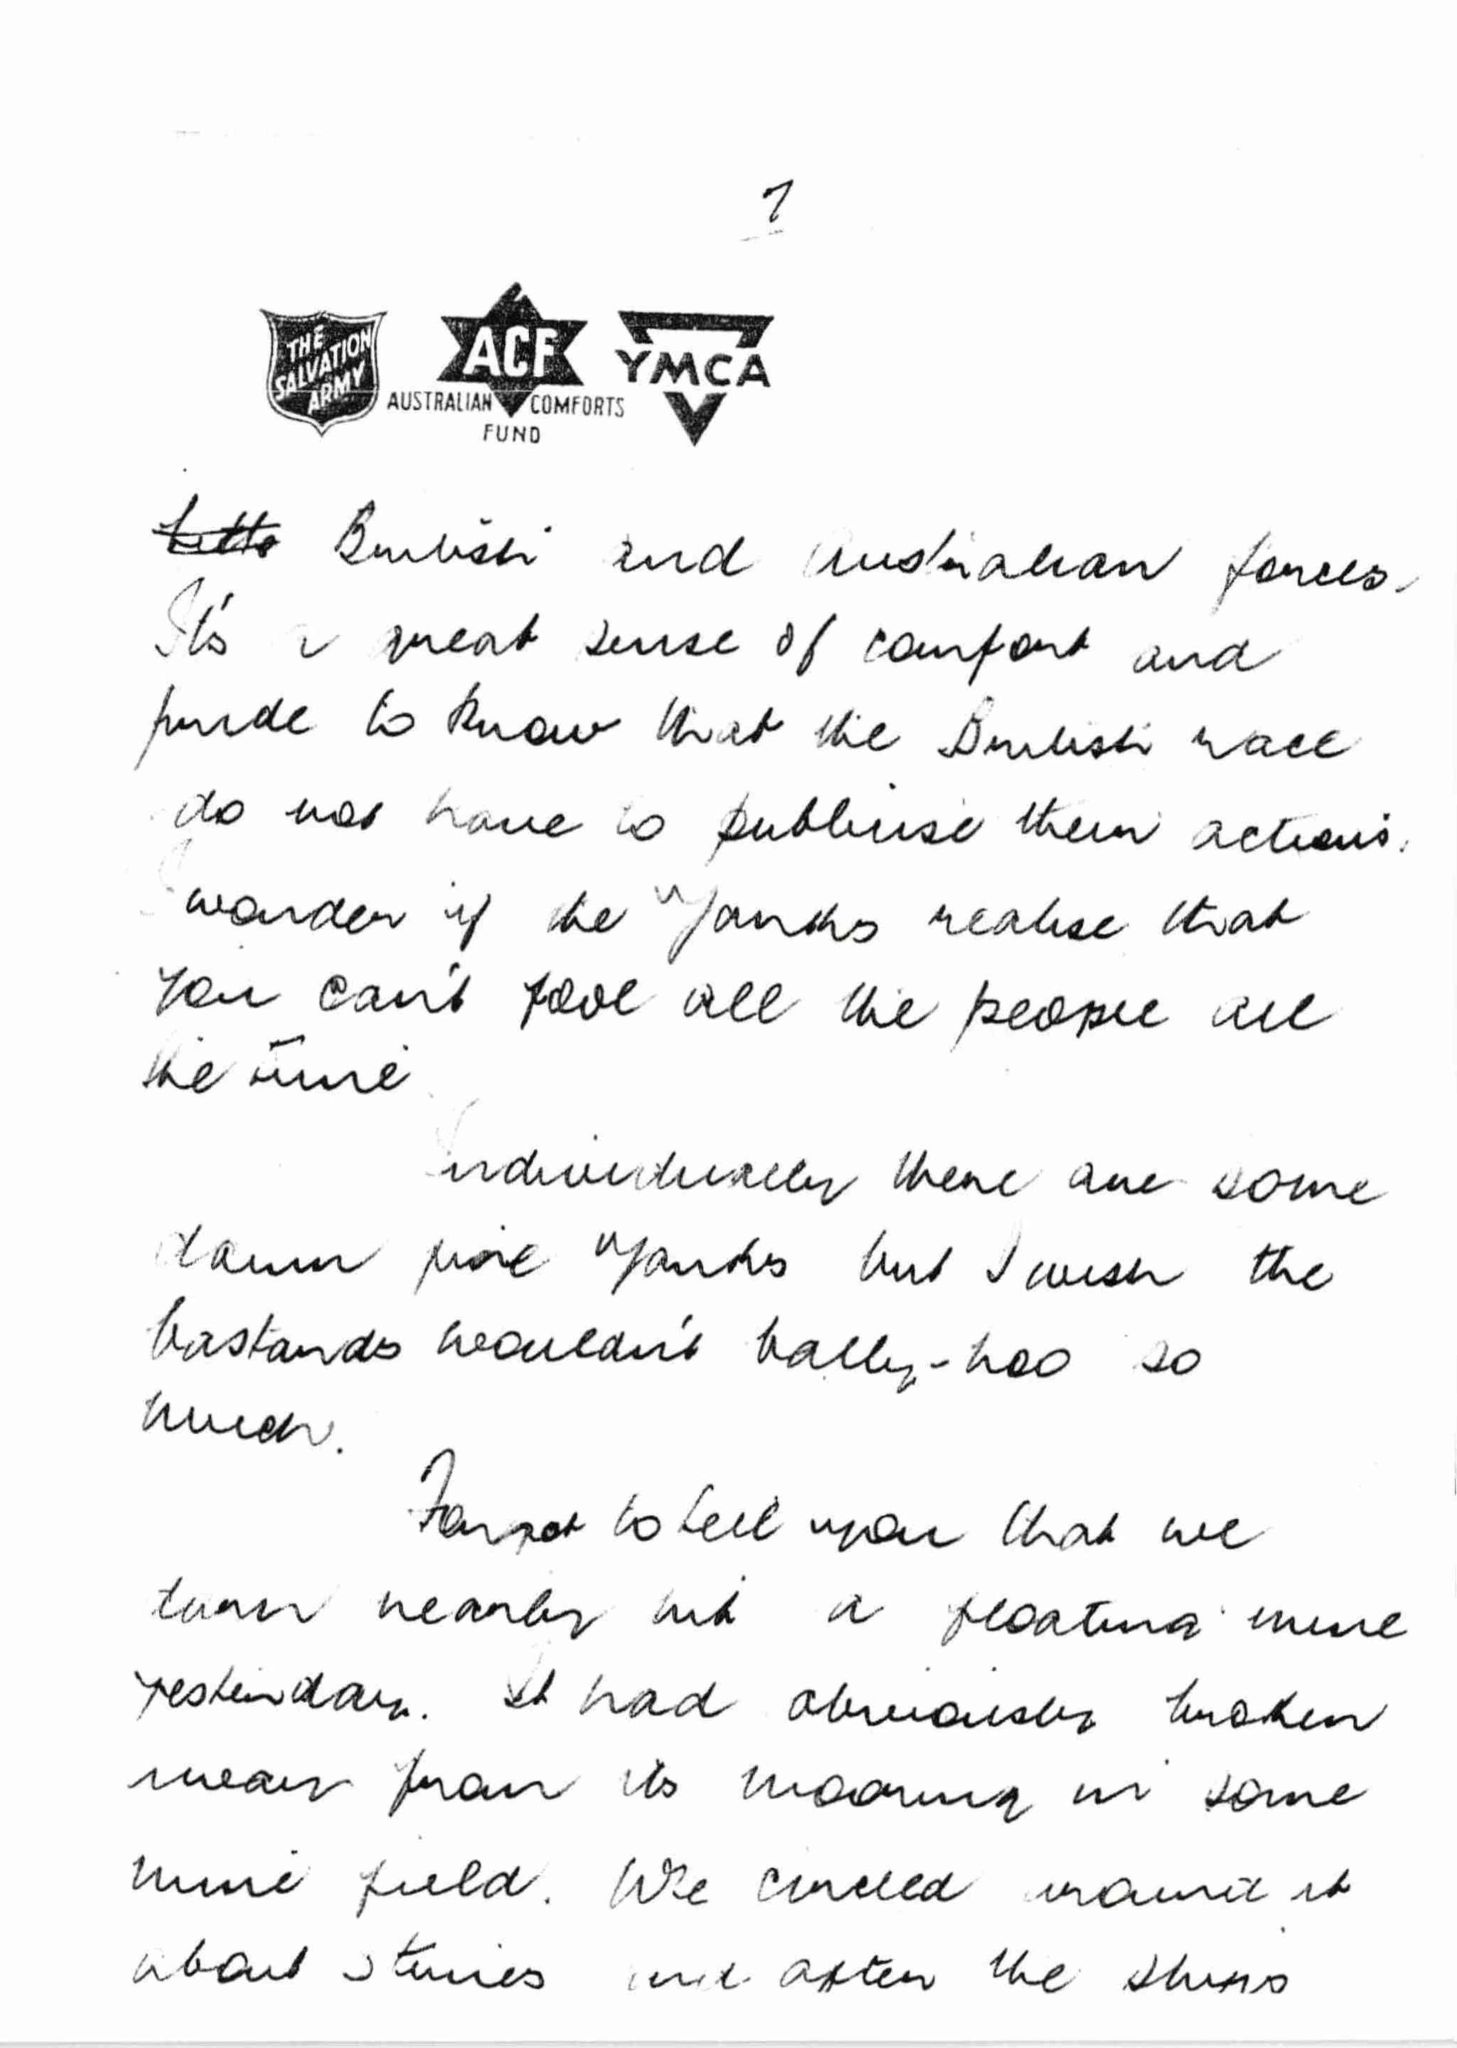 7
THE SALVATION ARMY
ACF
AUSTRALIAN COMFORTS FUND
YMCA
British and Australian forces.
It's a great sense of comfort and
pride to know that the British race
do not have to publicise their actions.
I wonder if the Yanks realise that
you can't fool all the people all
the time
Individually there are some
damn fine Yanks but I wish the
bastards wouldn't bally-hoo so
much.
Forgot to tell you that we
damn nearly hit a floating mine
yesterday. It had obviously broken
away from its mooring in some
mine field. We circled around it
about 3 times and after the ships